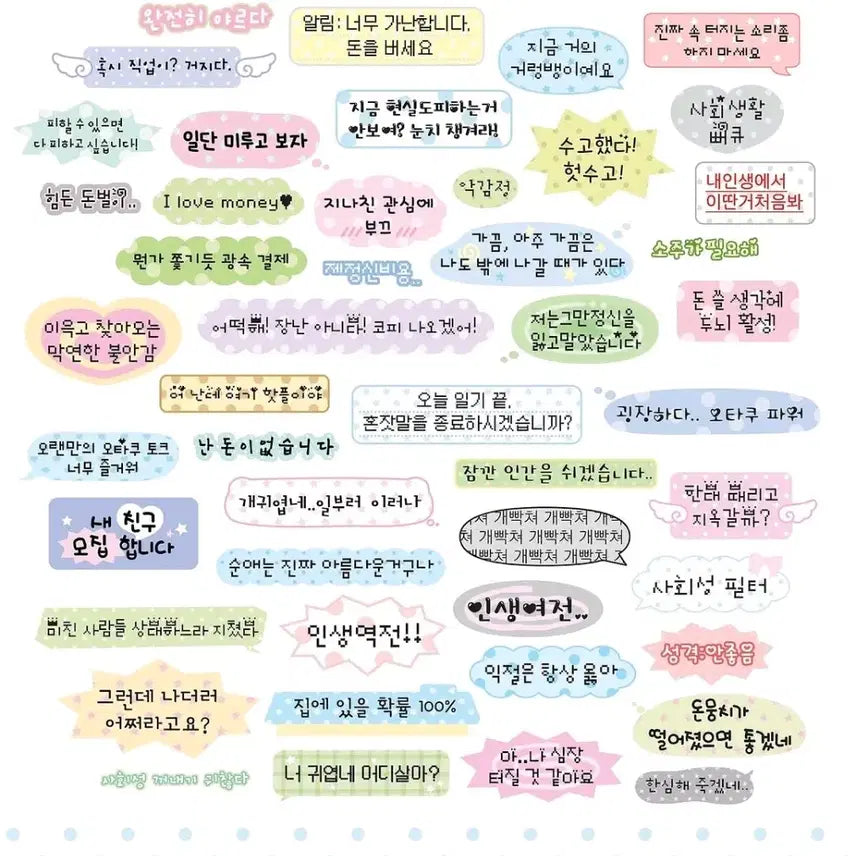 완전히 야르다
알림: 너무 가난합니다.
돈을 버세요
지금 거의
거렁뱅이예요
진짜 속 터지는 소리좀
하지 마세요
혹시 직업이? 거지다.
피할 수 있으면
다 피하고 싶습니다!
일단 미루고 보자
지금 현실도피하는거
안보여? 눈치 챙겨라!
수고했다!
헛수고!
사회 생활
뻐큐
힘든 돈벌기..
I love money♥
지나친 관심에
부끄
약감정
내인생에서
이딴거처음봐
뭔가 쫓기듯 광속 결제
제정신비용..
가끔, 아주 가끔은
나도 밖에 나갈 때가 있다
소주가 필요해
이윽고 찾아오는
막연한 불안감
어떡해! 장난 아니다! 코피 나오겠어!
저는그만정신을
잃고말았습니다
돈 쓸 생각에
두뇌 활성!
어 난데 여기 핫플이야
오늘 일기 끝,
혼잣말을 종료하시겠습니까?
굉장하다.. 오타쿠 파워
오랜만의 오타쿠 토크
너무 즐거워
난 돈이 없습니다
잠깐 인간을 쉬겠습니다..
새 친구
모집 합니다
개귀엽네..일부러 이러나
쳐 개빡쳐 개빡쳐 개빡
개빡쳐 개빡쳐 개빡쳐
쳐 개빡쳐 개빡쳐 개빡
한대 때리고
지옥갈까?
순애는 진짜 아름다운거구나
사회성 필터
미친 사람들 상대하느라 지쳤다
인생역전!!
인생여전..
성격:안좋음
익절은 항상 옳아
그런데 나더러
어쩌라고요?
집에 있을 확률 100%
돈뭉치가
떨어졌으면 좋겠네
사회성 꺼내기 귀찮다
너 귀엽네 어디살아?
아..나 심장
터질 것 같아요
한심해 죽겠네..